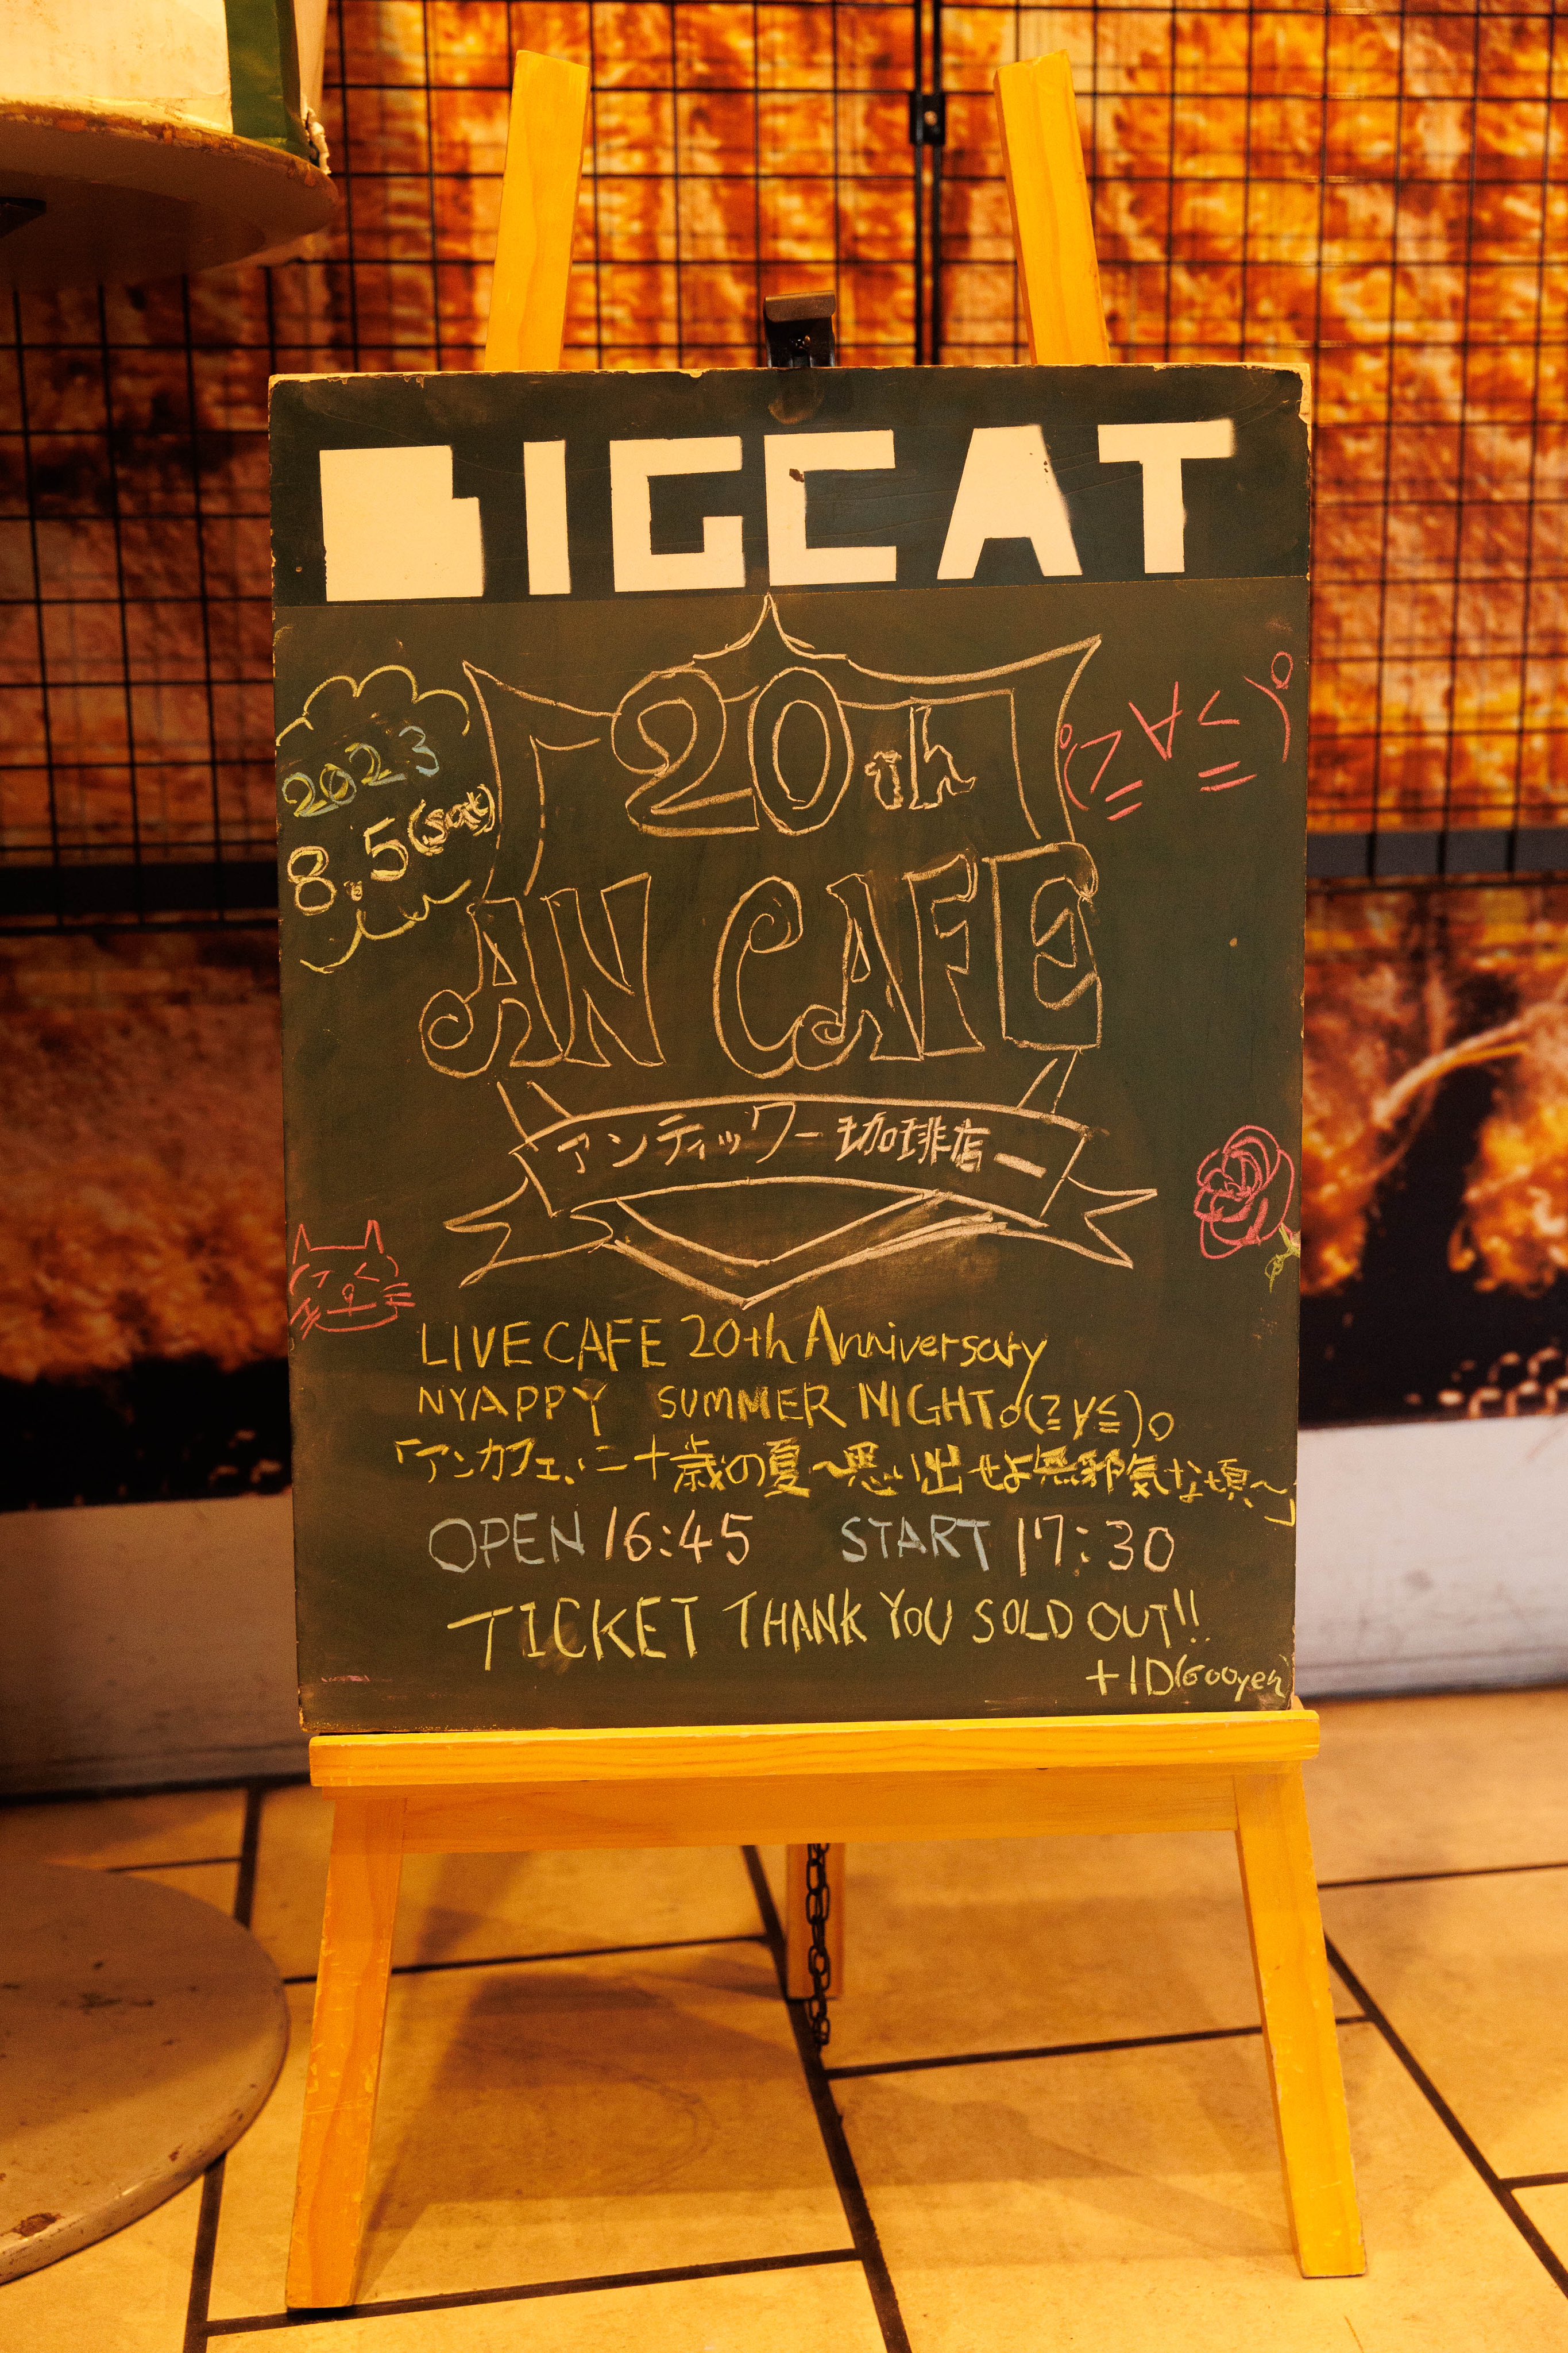 BIGCAT
20th
2023
8.5(sat)
AN CAFE
アンティック-珈琲店-
LIVE CAFE 20th Anniversary
NYAPPY SUMMER NIGHTo(≧∀≦)o
「アンカフェ、二十歳の夏〜思い出せよ無邪気な頃〜」
OPEN 16:45 START 17:30
TICKET THANK YOU SOLD OUT!!
+1D(600yen)